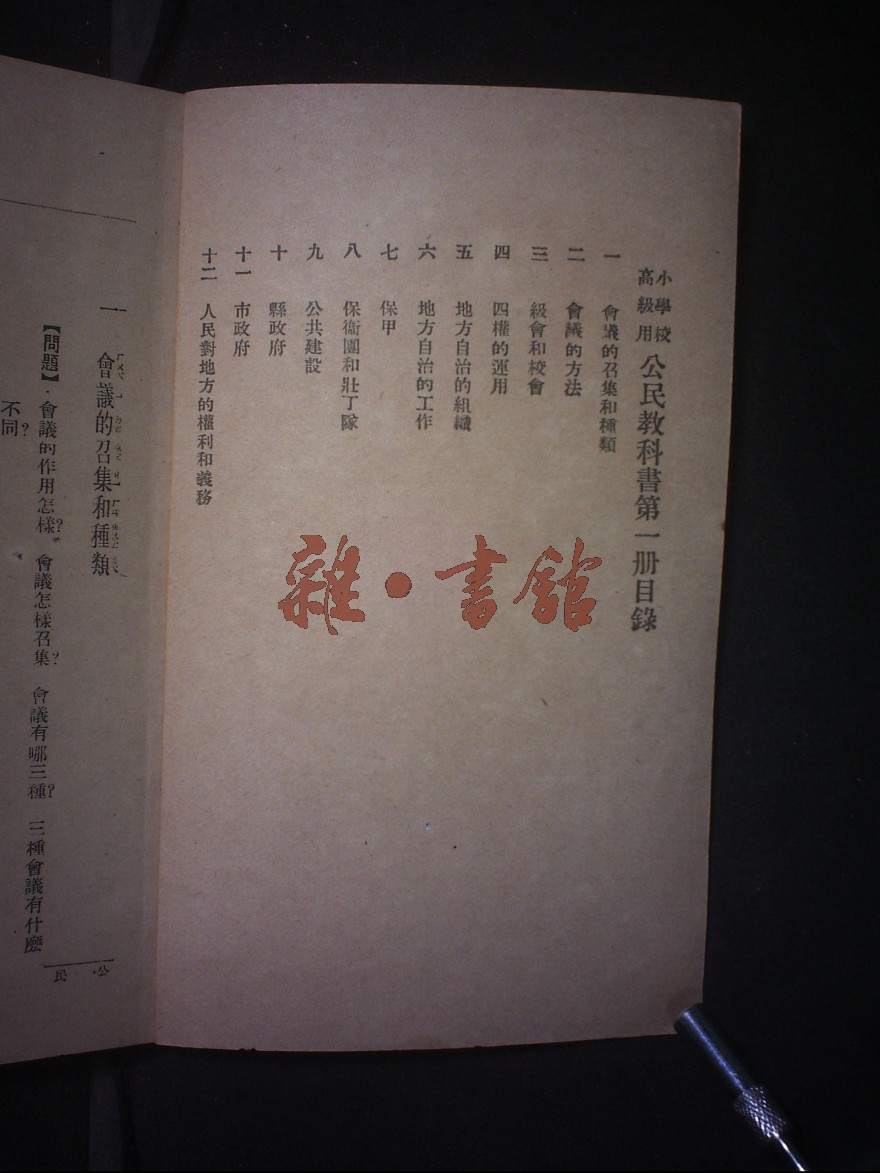 小學校高級用 公民教科書第一册目錄
一 會議的召集和種類
二 會議的方法
三 級會和校會
四 四權的運用
五 地方自治的組織
六 地方自治的工作
七 保甲
八 保衞團和壯丁隊
九 公共建設
十 縣政府
十一 市政府
十二 人民對地方的權利和義務
雜·書館
一 會議的召集和種類
【問題】會議的作用怎樣？ 會議怎樣召集？ 會議有哪三種？ 三種會議有什麼
不同？
公民